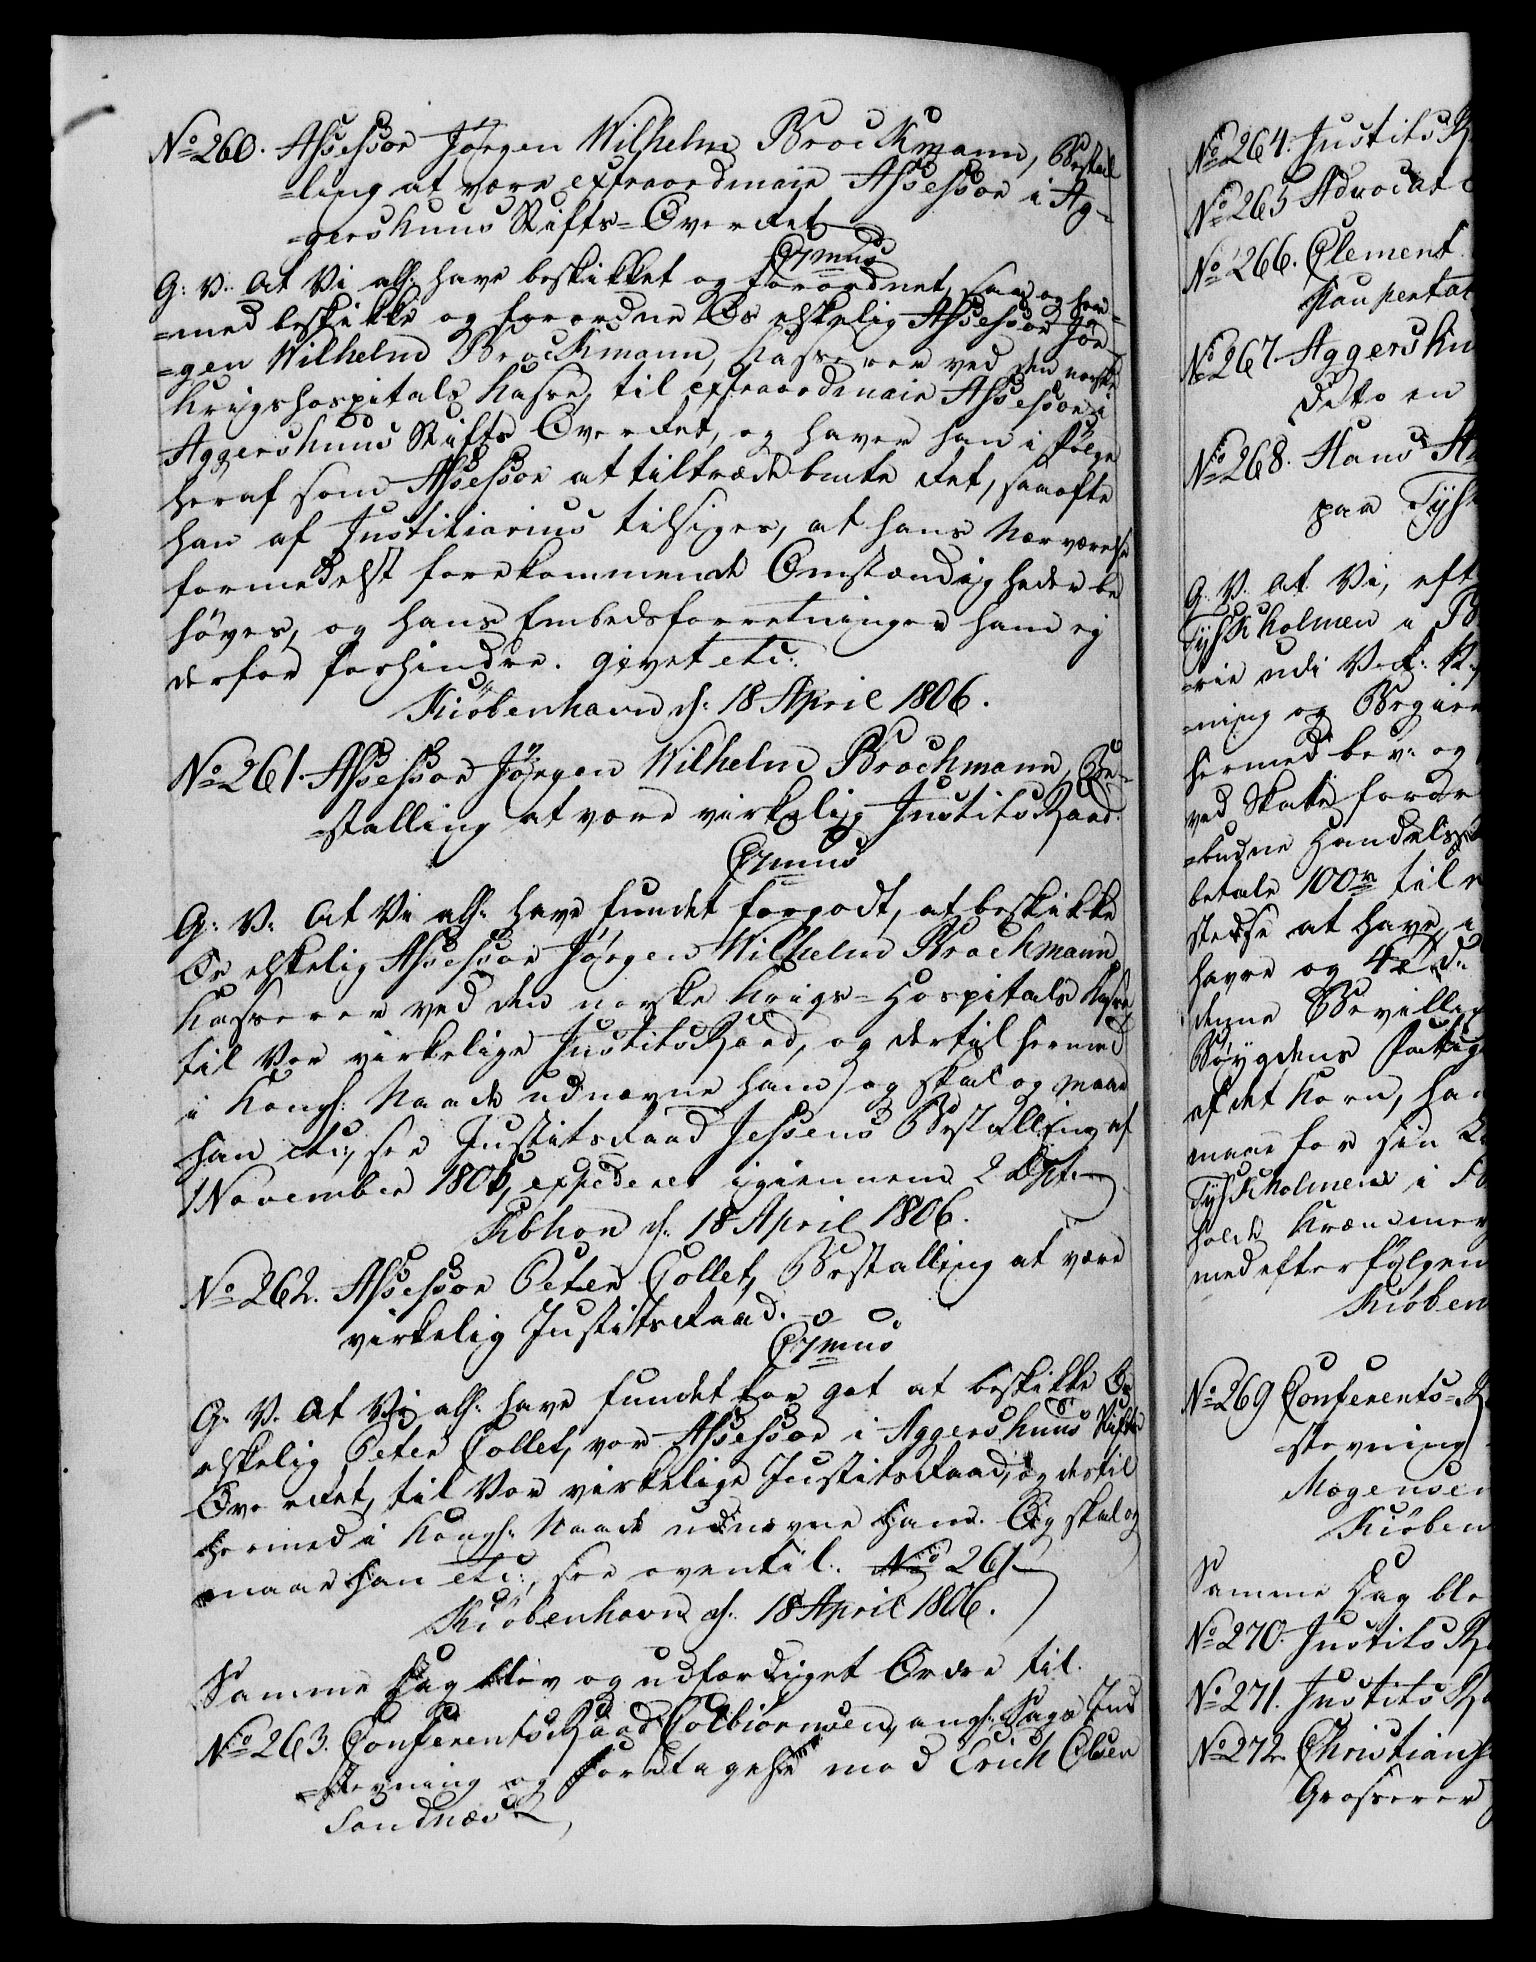 No 260. Assessor Jørgen Wilhelm Brochmann, Bestal
=ling at være extraordinair Assessor i Ag-
=gershuus Stifts=Overret
C7mus
G: V: At Vi als: have beskikket og forordnet, saa og her=
=med beskikke og forordne Os elskelig Assessor Jør
=gen Wilhelm Brochmann, Kasserer ved den norske
Krigshospitals Kasse, til extraordinair Assessor i
Aggershuus Stifts Overret, og haver han i Følge
heraf som Assessor at tiltræde bmte Ret, saa ofte
han af Justitiarius tilsiges, at hans Nærværelse
formedelst forekommende Omstændigheder be
høves, og hans Embedsforretninger ham ej
derfor forhindre. Givet etc:
Kiøbenhavn d: 18 April 1806.
No 261. Assessor Jørgen Wilhelm Brochmann, Be=
=stalling at være virkelig Justits Raad.
C7mus
G: V: At Vi als: have fundet forgodt, at beskikke
Os elskelig Assessor Jørgen Wilhelm Brochmann
Kasserer ved den norske Krigs=Hospitals Kasse
til Vor virkelige Justits Raad, og dertil hermed
i Kongl: Naade udnævne ham) og skal og maae
han etc:, see Justitsraad Jessens Bestalling af
1 November 1805, expederet igiennem 2 Dpt:
Kbhvn d: 18 April 1806.
No 262. Assessor Peter Collet, Bestalling at være
virkelig Justitsraad.
C7mus
G. V. At Vi als: have fundet for got at beskikke Os
elskelig Peter Collet, vor Assessor i Aggershuus Stifts
Overret, til Vor virkelige Justitsraad, og dertil
hermed i Kongl: Naade udnævne ham. Og skal og
maae han etc:, see oventil. No 261.
Kiøbenhavn d: 18 April 1806.
Samme Dag blev og udfærdiget Ordre til.
No 263. Conferents Raad Colbiørnsen, angl: Sags Ind
=stevning og Foretagelse mod Erich Olsen
Sandnæs
No 264. Justits R
No 265 Advocat
No 266. Clement
No 267. Aggershu
Dito en
No 268. Hans
paa Tysk
G. V. At Vi, eft
Tyskholmen i
=rie udi
=ning og
hermed bev: og
ved Skatte fordr
=budne Handels
betale 100 til
stedse at have i
havre og 4
denne Bevilling
Bøygdens
af det Korn, ha
maae for sin
Tyskholmen i
holde
med efterfølgen
Kiøben
No 269 Conferents=R
=stevning
Mogensen
Kiøben
Samme Dag ble
No 270. Justits Ra
No 271. Justits Ra
No 272. Christian
Grosserer